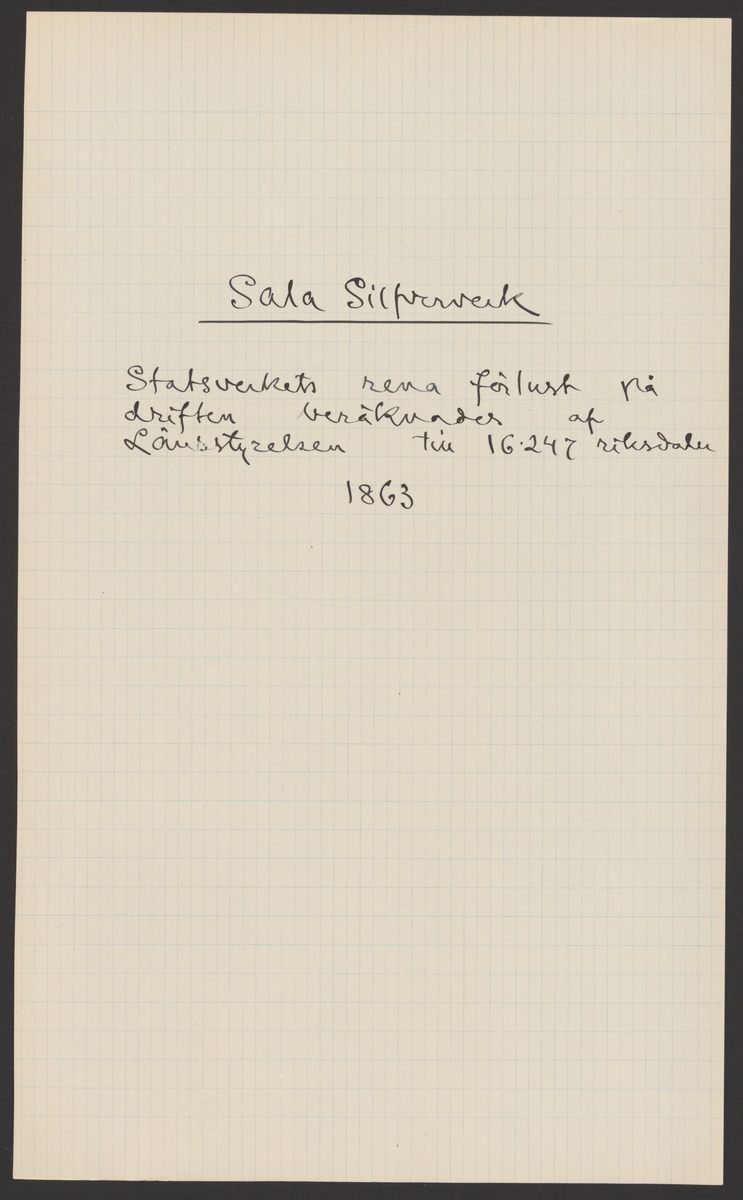 Sala Silfververk
Statsverkets rena förlust på
driften beräknades af
Länsstyrelsen till 16.247 riksdaler
1863